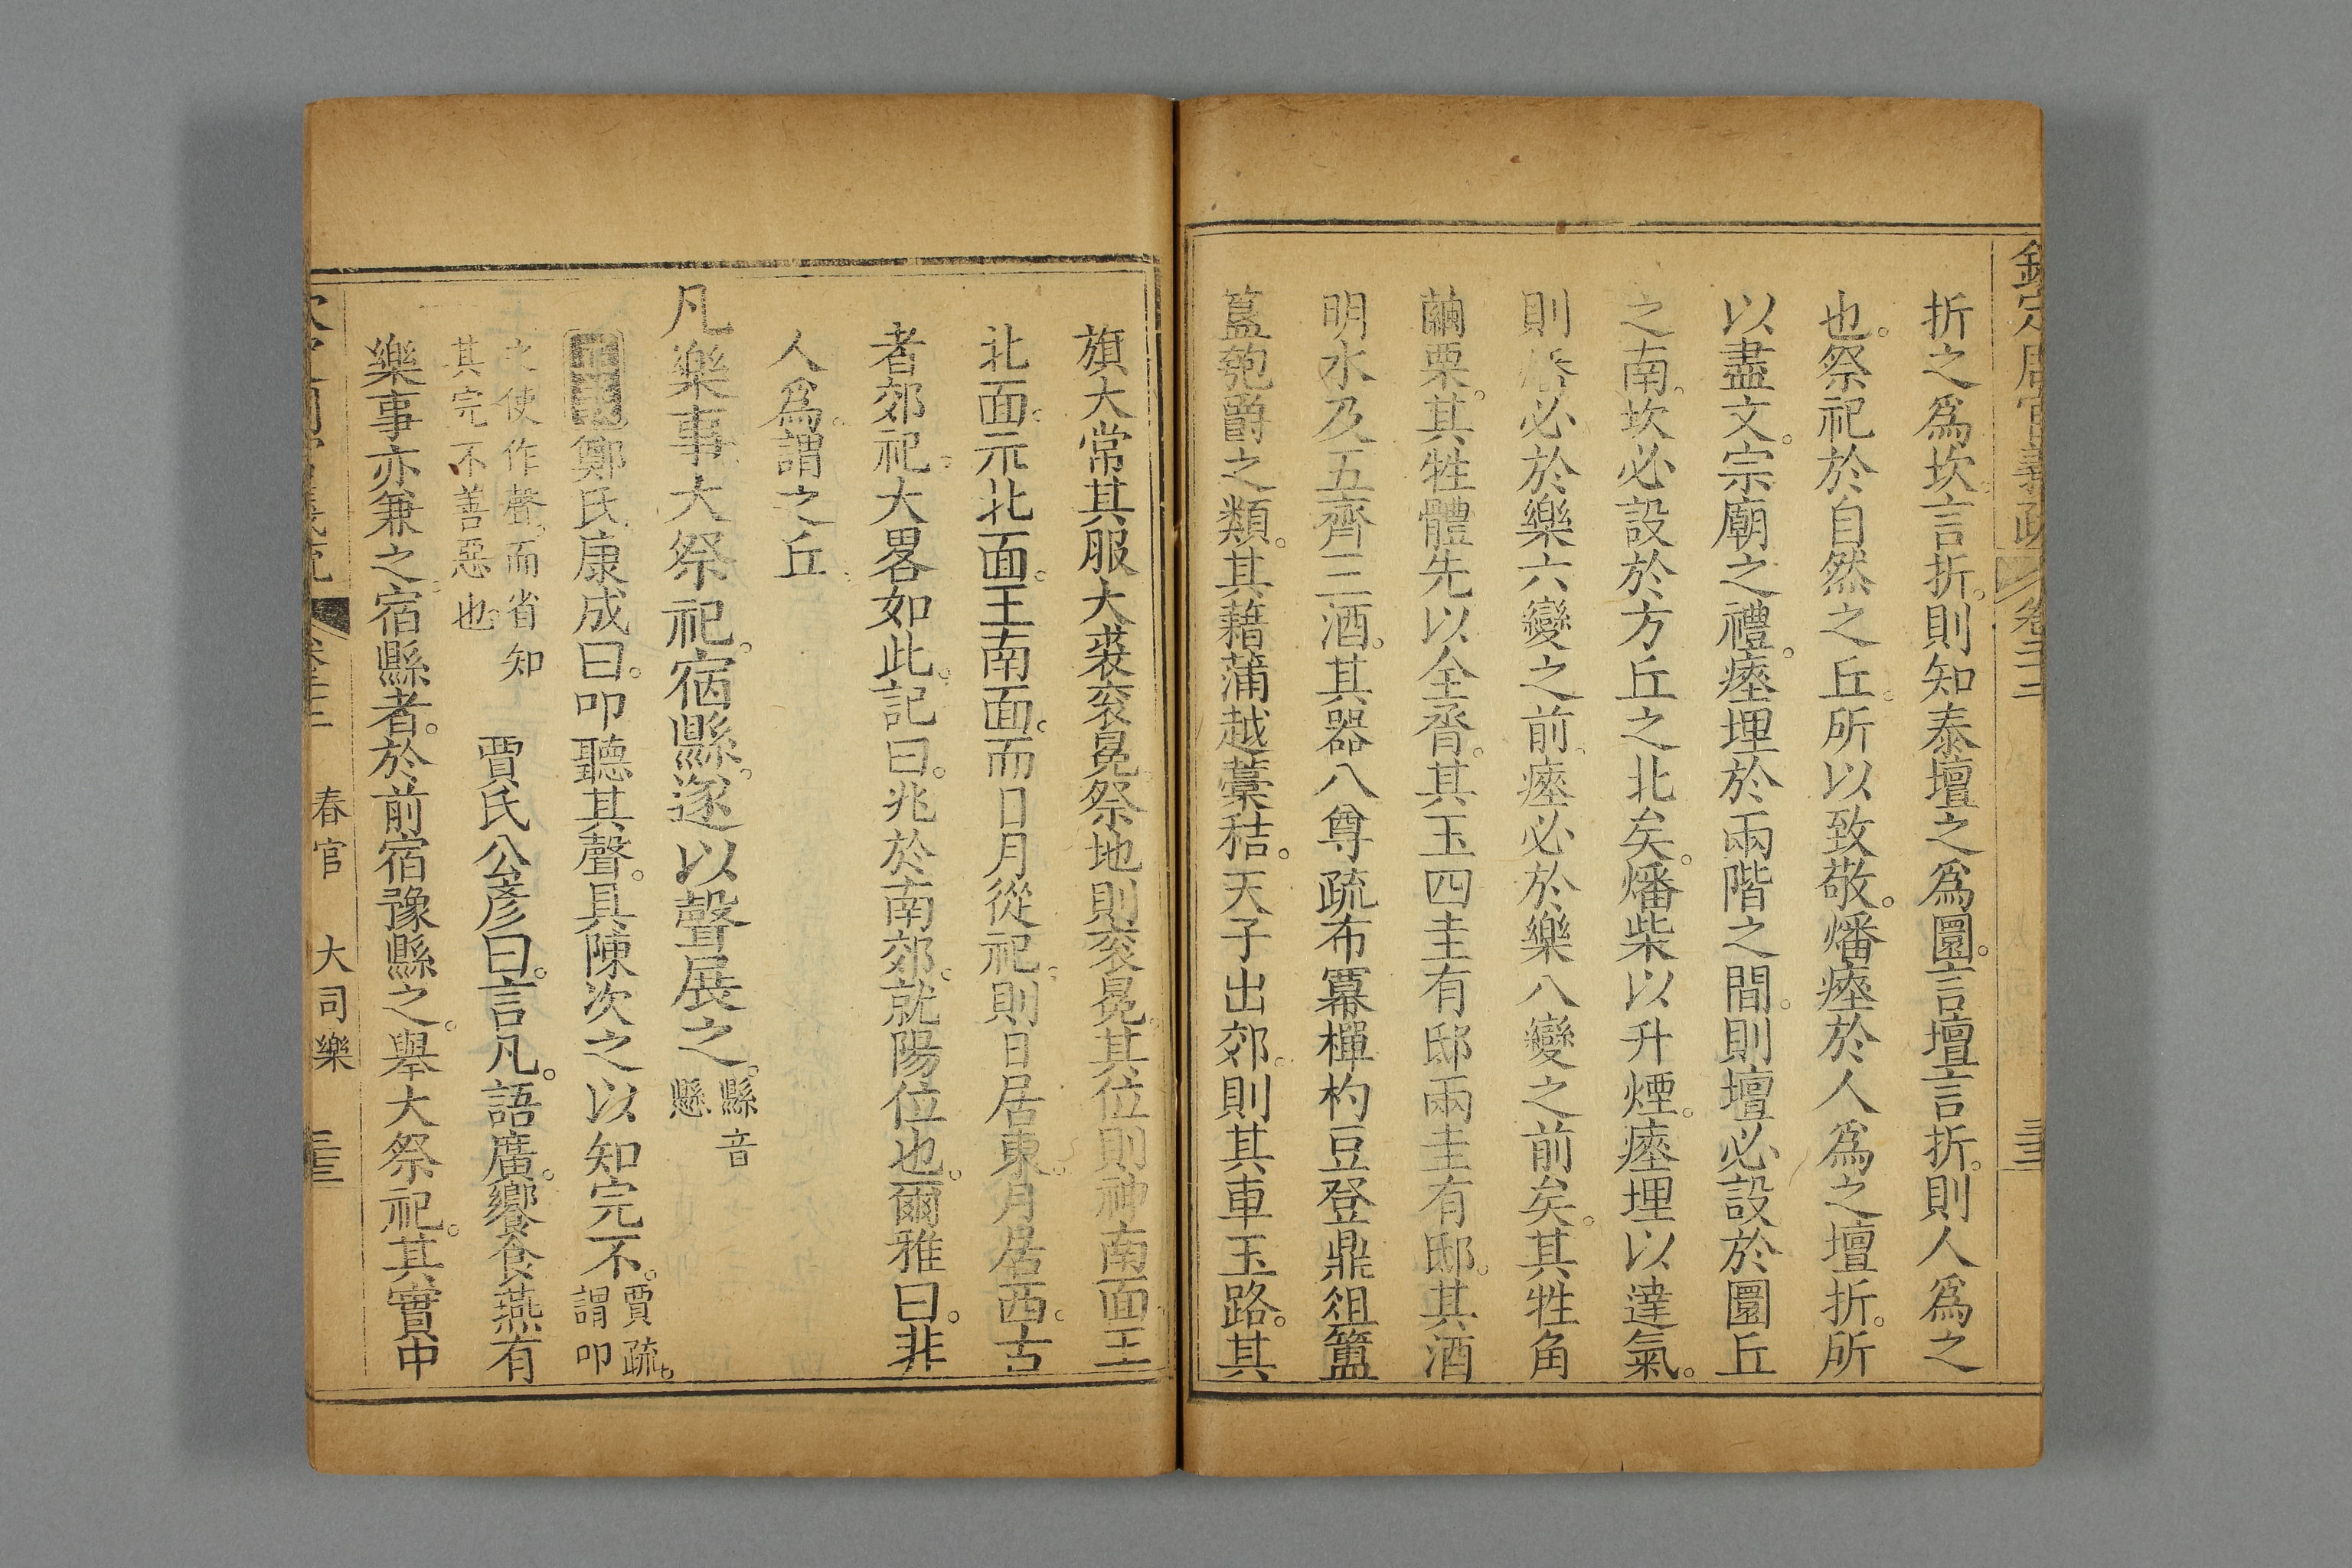 欽定周官義疏 卷二十二 三十三
折之爲坎言折。則知泰壇之爲圜。言壇言折。則人爲之
也。祭祀於自然之丘。所以致敬。燔瘞於人爲之壇折。所
以盡文。宗廟之禮。瘞埋於兩階之間。則壇必設於圜丘
之南。坎必設於方丘之北矣。燔柴以升煙。瘞埋以達氣。
則燔必於樂六變之前。瘞必於樂八變之前矣。其牲角
繭栗。其牲體先以全脀。其玉四圭有邸兩圭有邸。其酒
明水及五齊三酒。其器八尊疏布冪樿杓豆登鼎俎簠
簋匏爵之類。其藉蒲越藁秸。天子出郊。則其車玉路。其
旗大常其服大裘衮冕。祭地則衮冕。其位則神南面王
北面。示北面。王南面。而日月從祀。則日居東。月居西。古
者郊祀。大畧如此。記曰。兆於南郊。就陽位也。爾雅曰。非
人爲。謂之丘。
凡樂事大祭祀。宿縣。遂以聲展之。縣音
懸
鄭氏康成曰。叩聽其聲。具陳次之以知完不。賈疏。
謂叩
之使作聲。而省知
其完不善惡也。
賈氏公彦曰。言凡。語廣。饗食燕有
樂事亦兼之。宿縣者。於前宿豫縣之。舉大祭祀。其實中
春官 大司樂 三十三